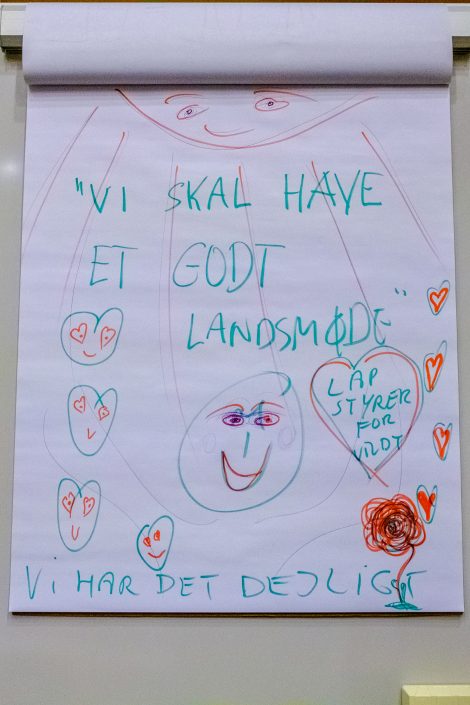 "VI SKAL HAVE
ET GODT
LANDSMØDE"
LAP
STYRER
FOR
VILDT
VI HAR DET DEJLIGT